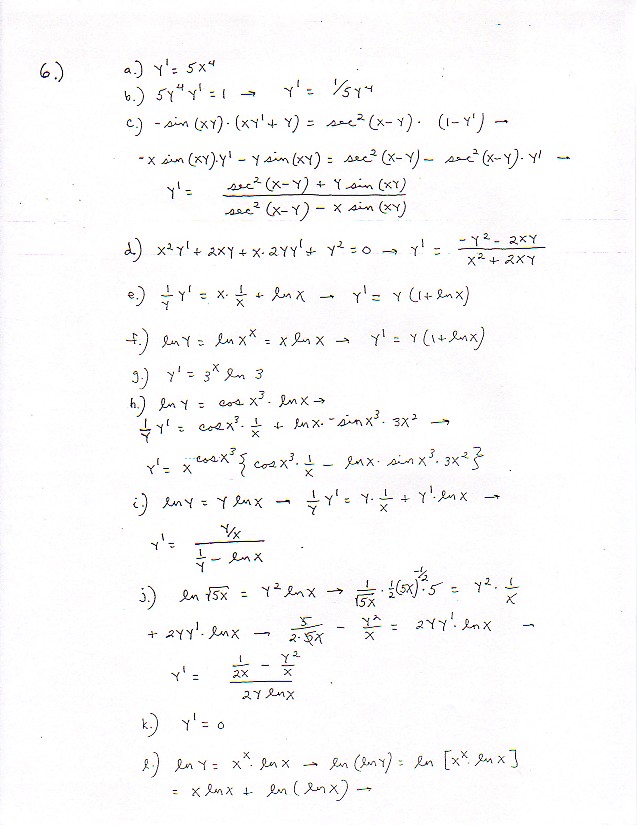 6.) a.) y' = 5x⁴
b.) 5y⁴y' = 1 → y' = 1/5y⁴
c.) -sin(xy)·(xy' + y) = sec²(x-y)·(1-y') →
-x sin(xy)·y' - y sin(xy) = sec²(x-y) - sec²(x-y)·y' →
y' = (sec²(x-y) + y sin(xy)) / (sec²(x-y) - x sin(xy))
d.) x²y' + 2xy + x·2yy' + y² = 0 → y' = (-y² - 2xy) / (x² + 2xy)
e.) 1/y y' = x·1/x + ln x → y' = y(1+ln x)
f.) ln y = ln xˣ = x ln x → y' = y(1+ln x)
g.) y' = 3ˣ ln 3
h.) ln y = cos x³·ln x →
1/y y' = cos x³·1/x + ln x·-sin x³·3x² →
y' = x^(cos x³) {cos x³·1/x - ln x·sin x³·3x²}
i.) ln y = y ln x → 1/y y' = y·1/x + y'·ln x →
y' = (y/x) / (1/y - ln x).
j.) ln √5x = y² ln x → 1/√5x · 1/2(5x)^(-1/2)·5 = y²·1/x
+ 2yy'·ln x → 5/(2·5x) - y²/x = 2yy'·ln x →
y' = (1/2x - y²/x) / (2y ln x).
k.) y' = 0
l.) ln y = xˣ·ln x → ln(ln y) = ln [xˣ·ln x]
= x ln x + ln(ln x) →